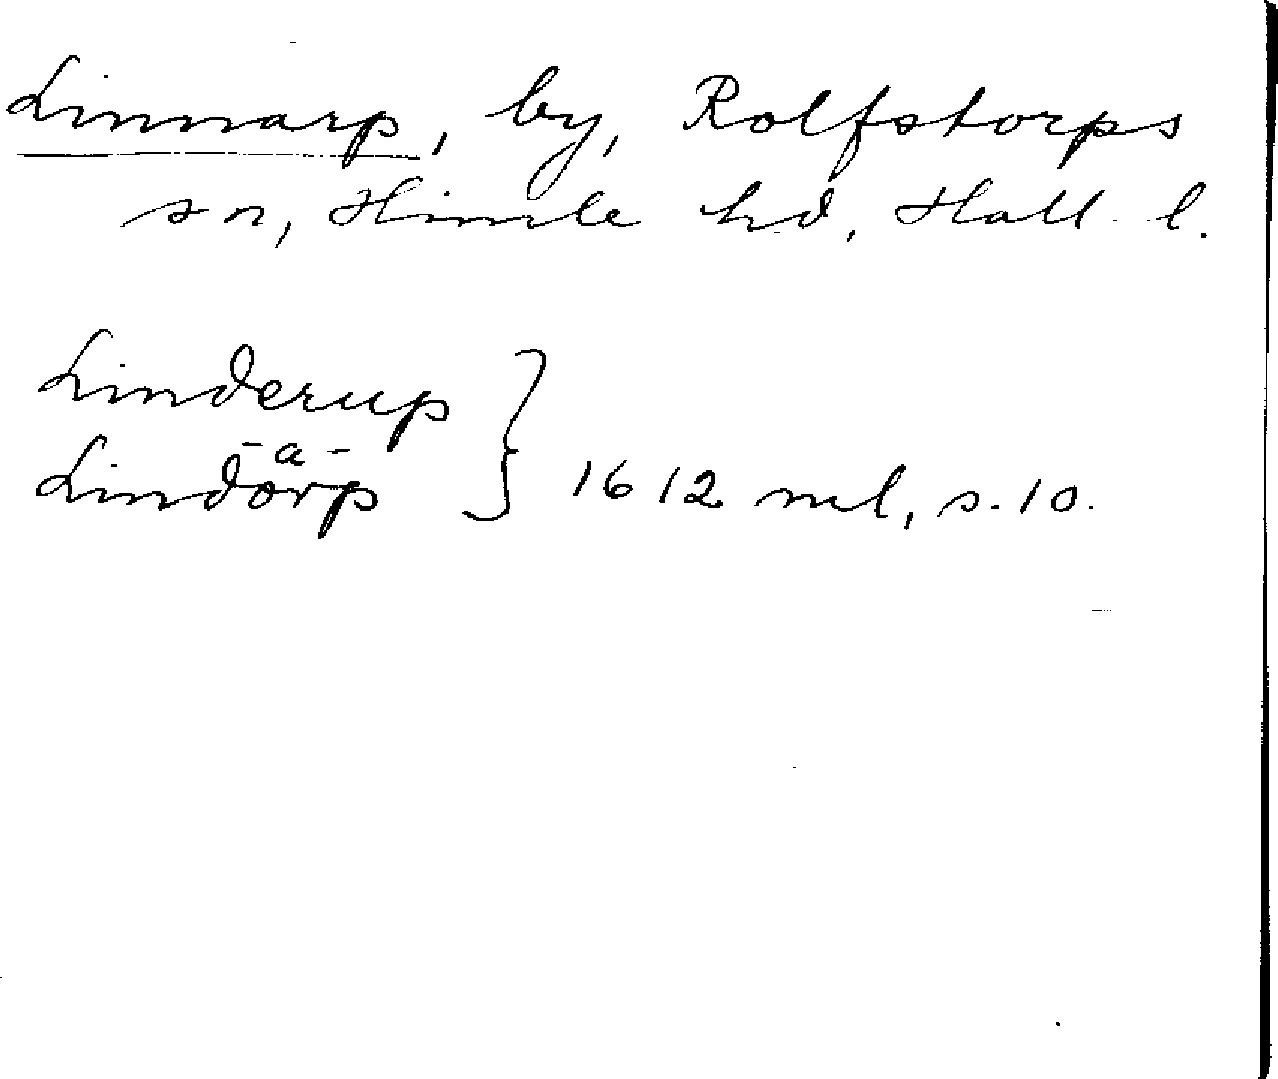 Linnarp, by, Rolfstorps
sn, Himle hd, Hall. l.
Linderup
-a-
Lindorp } 1612 ml, s. 10.